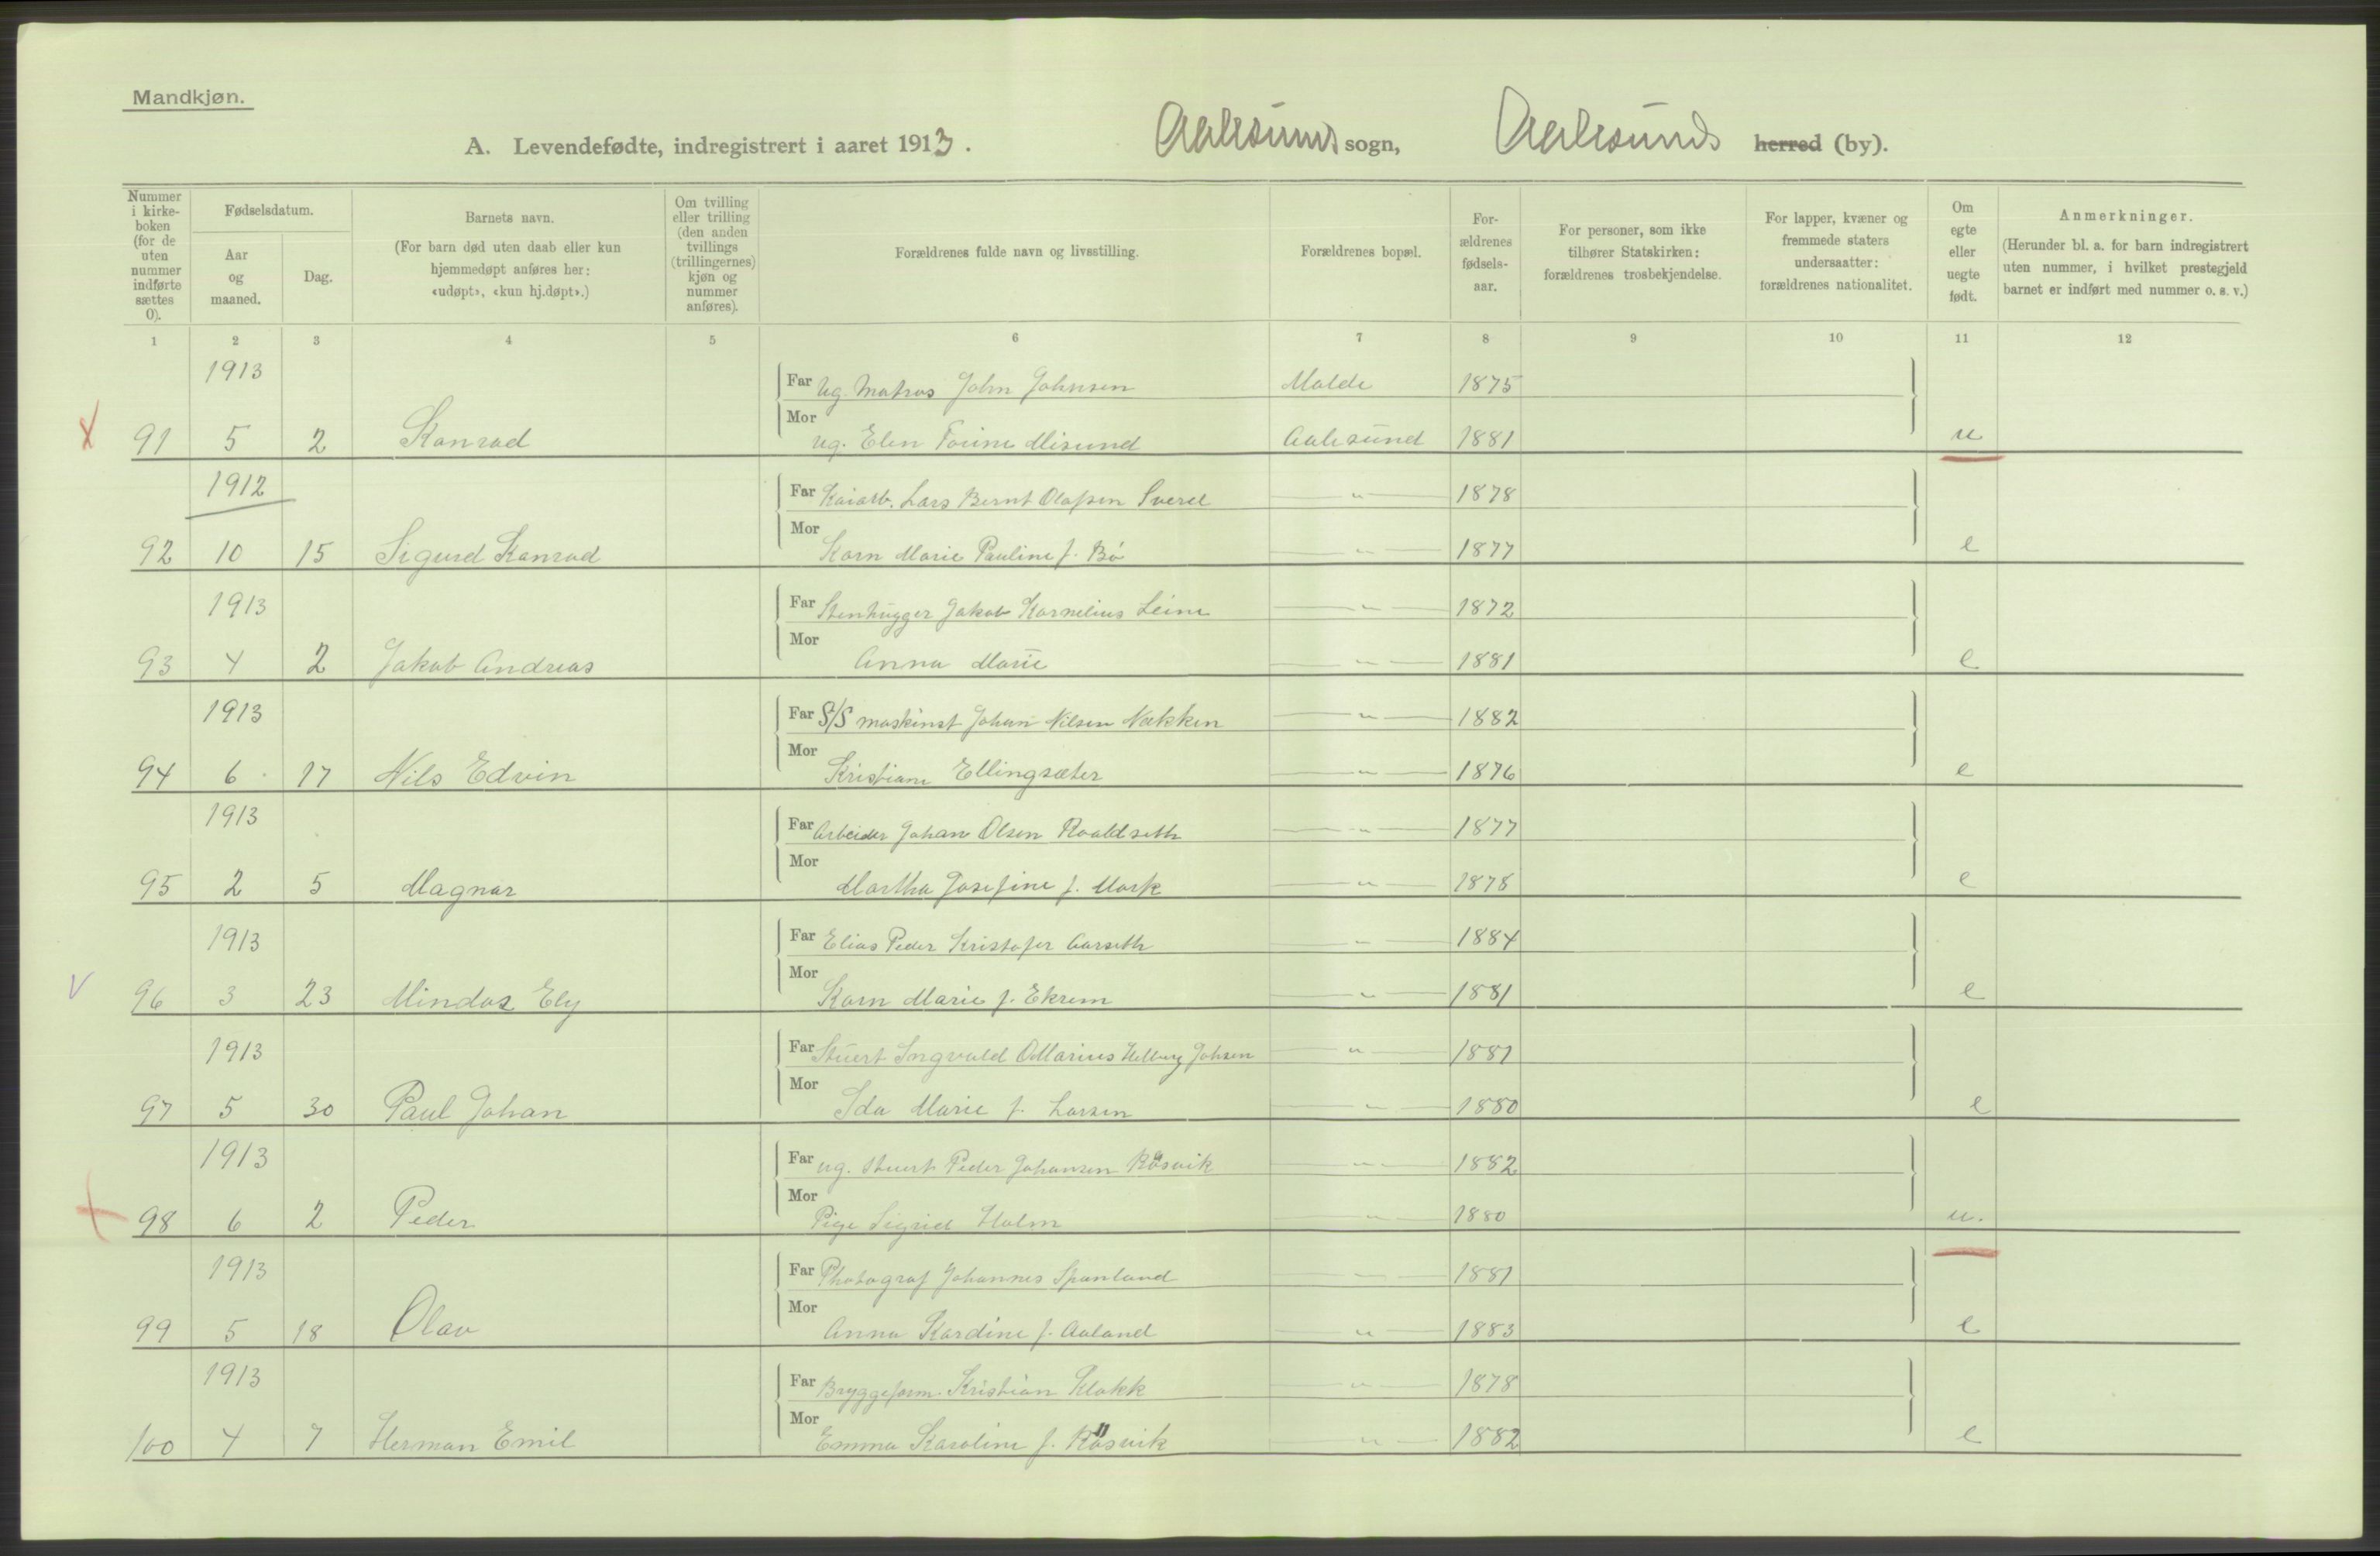 Mandkjøn.
A. Levendefødte, indregistrert i aaret 1913. Aalesunds sogn, Aalesunds herred (by).
Nummer i kirke-boken (for de uten nummer indførte sættes 0).
Fødselsdatum.
Aar og maaned.
Dag.
Barnets navn.
(For barn død uten daab eller kun hjemmedøpt anføres her: «udøpt», «kun hj.døpt».)
Om tvilling eller trilling (den anden tvillings (trillingernes) kjøn og nummer anføres).
Forældrenes fulde navn og livsstilling.
Forældrenes bopæl.
For-ældrenes fødsels-aar.
For personer, som ikke tilhører Statskirken: forældrenes trosbekjendelse.
For lapper, kvæner og fremmede staters undersaatter: forældrenes nationalitet.
Om egte eller uegte født.
Anmerkninger.
(Herunder bl. a. for barn indregistrert uten nummer, i hvilket prestegjeld barnet er indført med nummer o. s. v.)
1 2 3 4 5 6 7 8 9 10 11 12
1913 Far Ug. Matros John Johnsen Molde 1875
91 5 2 Konrad Mor Ug. Elen Misund Aalesund 1881 u
1912 Far Kaiarb. Lars Bernt Olafsen 〃 1878
92 10 15 Sigurd Konrad Mor Karn Marie Pauline f. Bö 〃 1877 e
1913 Far Stenhugger Jakob Kornelius Leine 〃 1872
93 4 2 Jakob Andreas Mor Anna Marie 〃 1881 e
1913 Far S/S maskinst Johan Nilsen Nekken 〃 1882
94 6 17 Nils Edvin Mor Kristiane Ellingsæter 〃 1876 e
1913 Far Arbeider Johan Olsen Roaldseth 〃 1877
95 2 5 Magnar Mor Martha Josefine f. Mork 〃 1878 e
1913 Far Elias Peder Kristofer Aarseth 〃 1884
96 3 23 Mindor Ely Mor Karn Marie f. Ekrem 〃 1881 e
1913 Far Stuert Ingvald OMarius Johsen 〃 1881
97 5 30 Paul Johan Mor Ida Marie f. Larsen 〃 1880 e
1913 Far ug. Stuert Peder Johansen Räsvik 〃 1882
98 6 2 Peder Mor Pige Sigrid Holm 〃 1880 u.
1913 Far Photograf Johannes Spanland 〃 1881
99 5 18 Olav Mor Anna Kardine f. Aaland 〃 1883 e
1913 Far Bryggeform. Kristian Klokk 〃 1878
100 4 7 Herman Emil Mor Emma Karoline f. Räsvik 〃 1882 e